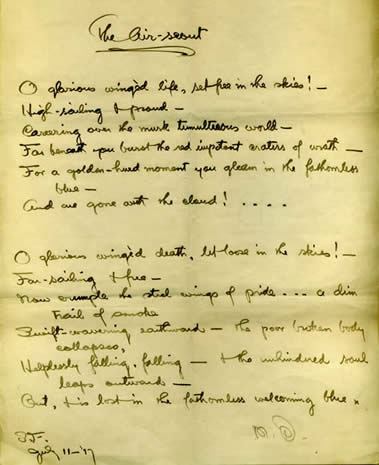 The Air-scout
O glorious wingèd life, set free in the skies! —
High-sailing & proud —
Careering over the murk tumultuous world —
Far beneath you burst the red impotent craters of wrath —
For a golden-hued moment you gleam in the fathomless
blue —
And are gone with the cloud! . . . .
O glorious wingèd death, let loose in the skies! —
Far-sailing & free —
Now crumple the steel wings of pride . . . a dim
trail of smoke
Swift-wavering earthward — the poor broken body
collapses,
Helplessly falling, falling — & the unhindered soul
leaps outward —
But, & is lost in the fathomless welcoming blue
July 11–'17